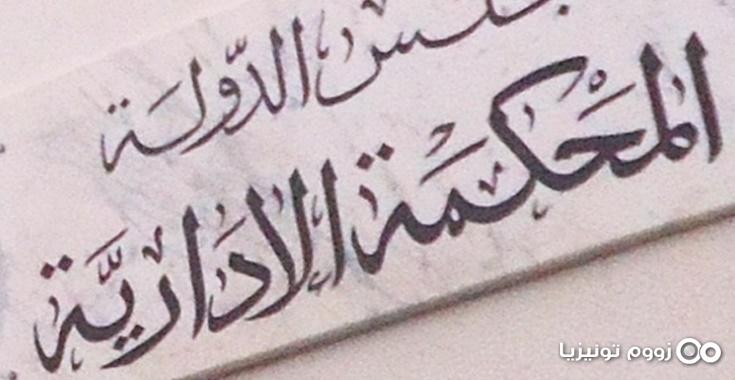 مجلس الدّولة
المحكمة الادارية
زووم تونيزيا